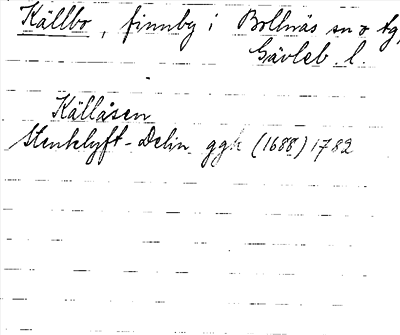 Källbo, finnby i Bollnäs sn o tg,
Gävleb. l.
Källåsen
Stenklyft-Delin. ggk (1688) 1782